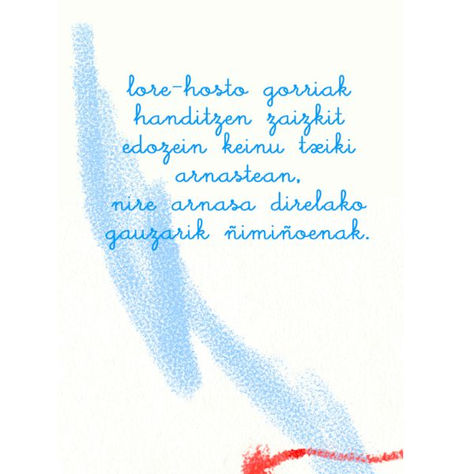 lore-hosto gorriak
handitzen zaizkit
edozein keinu txiki
arnastean,
nire arnasa direlako
gauzarik ñimiñoenak.